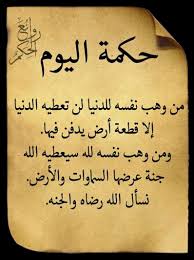 روائع الحكم
حكمة اليوم
من وهب نفسه للدنيا لن تعطيه الدنيا
إلا قطعة أرض يدفن فيها.
ومن وهب نفسه لله سيعطيه الله
جنة عرضها السماوات والأرض.
نسأل الله رضاه والجنه.